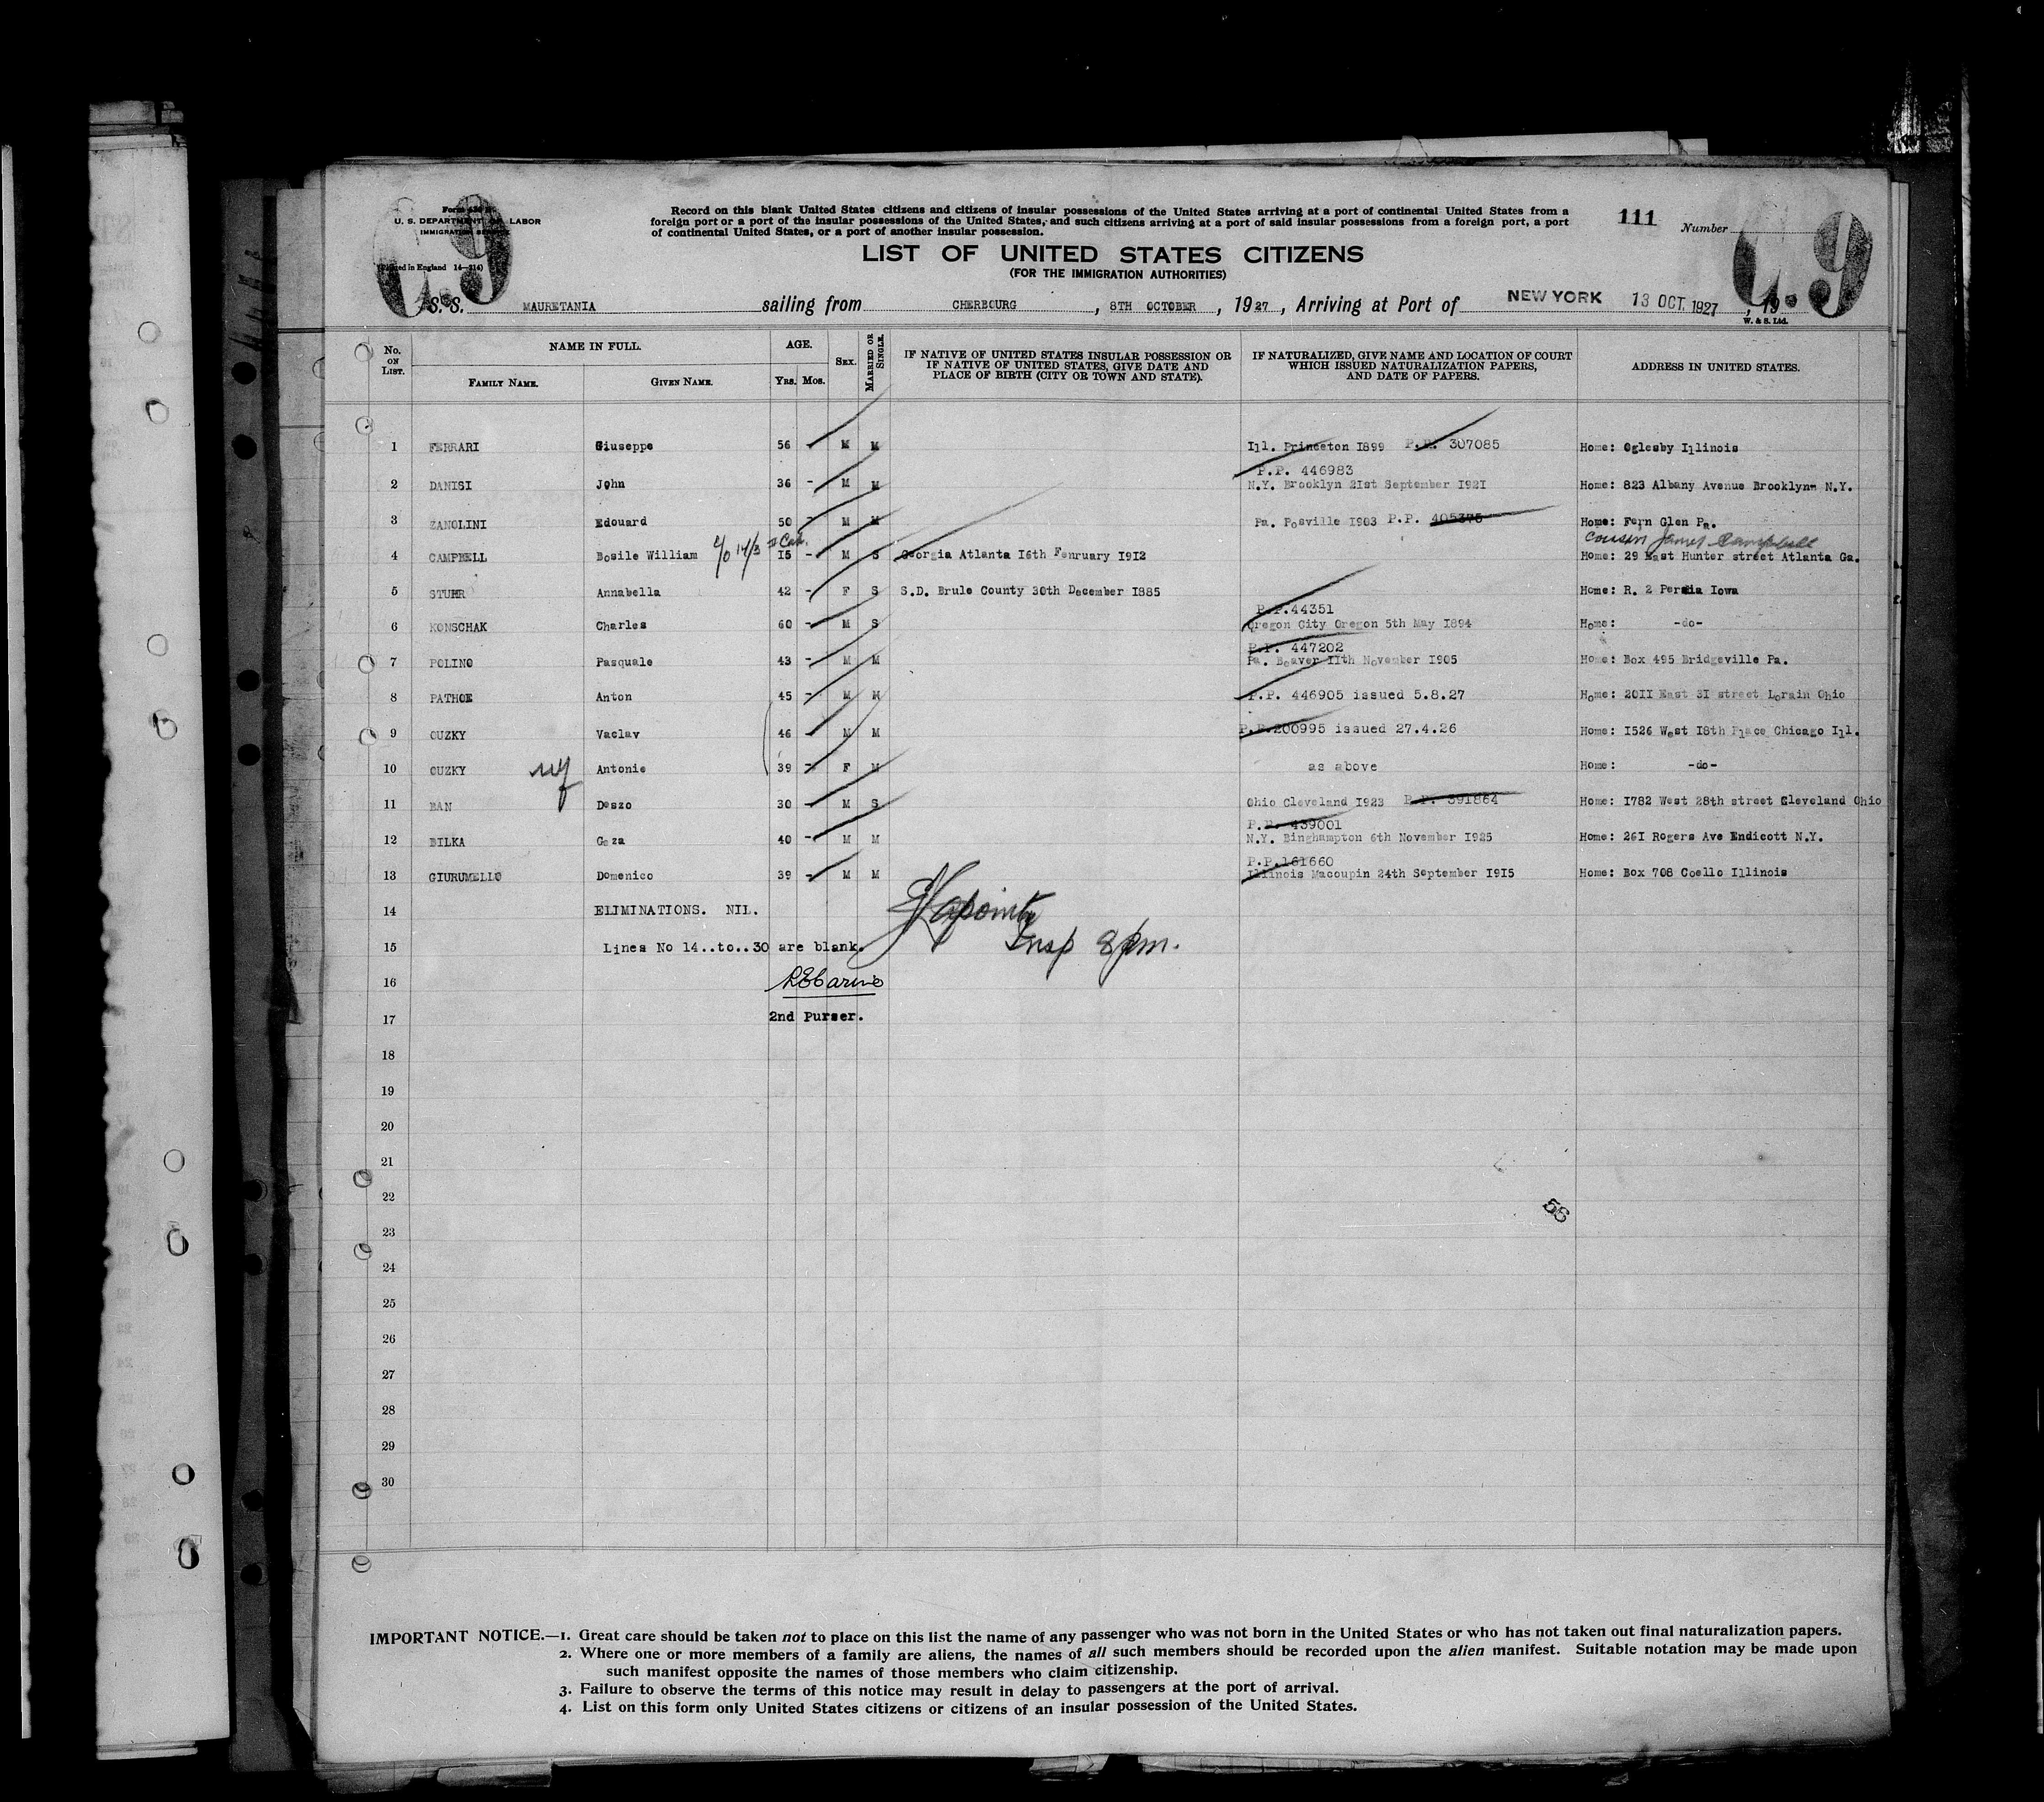 Form 630 B
U. S. DEPARTMENT OF LABOR
IMMIGRATION SERVICE
(Printed in England 14—214)
C. 9
Record on this blank United States citizens and citizens of insular possessions of the United States arriving at a port of continental United States from a
foreign port or a port of the insular possessions of the United States, and such citizens arriving at a port of said insular possessions from a foreign port, a port
of continental United States, or a port of another insular possession.
111 Number
C. 9
LIST OF UNITED STATES CITIZENS
(FOR THE IMMIGRATION AUTHORITIES)
S. S. MAURETANIA sailing from CHERBOURG, 8TH OCTOBER, 1927, Arriving at Port of NEW YORK 13 OCT. 1927, 19
W. & S. Ltd.
No. ON LIST. NAME IN FULL. FAMILY NAME. GIVEN NAME. AGE. YRS. MOS. SEX. MARRIED OR SINGLE. IF NATIVE OF UNITED STATES INSULAR POSSESSION OR IF NATIVE OF UNITED STATES, GIVE DATE AND PLACE OF BIRTH (CITY OR TOWN AND STATE). IF NATURALIZED, GIVE NAME AND LOCATION OF COURT WHICH ISSUED NATURALIZATION PAPERS, AND DATE OF PAPERS. ADDRESS IN UNITED STATES.
1 FERRARI Giuseppe 56 - M M Ill. Princeton 1899 P.P. 307085 Home: Oglesby Illinois
P.P. 446983
2 DANISI John 36 - M M N.Y. Brooklyn 21st September 1921 Home: 823 Albany Avenue Brooklyn- N.Y.
3 ZANOLINI Edouard 50 - M M Pa. Posville 1903 P.P. 405375 Home: Fern Glen Pa.
cousin James Campbell
4 CAMPBELL Bosile William 15 - M S Georgia Atlanta 16th Fenruary 1912 Home: 29 East Hunter street Atlanta Ga.
5 STUHR Annabella 42 - F S S.D. Brule County 30th December 1885 Home: R. 2 Persia Iowa
P.P.44351
6 KONSCHAK Charles 60 - M S Oregon City Oregon 5th May 1894 Home: -do-
P.P. 447202
7 POLINO Pasquale 43 - M M Pa. Beaver 11th November 1905 Home: Box 495 Bridgeville Pa.
8 PATHOE Anton 45 - M M P.P. 446905 issued 5.8.27 Home: 2011 East 31 street Lorain Ohio
9 OUZKY Vaclav 46 - M M P.P.200995 issued 27.4.26 Home: 1526 West 18th Place Chicago Ill.
10 OUZKY wf Antonie 39 - F M as above Home: -do-
11 BAN Deszo 30 - M S Ohio Cleveland 1923 P.P. 391864 Home: 1782 West 28th street Cleveland Ohio
P.P. 439001
12 BILKA Geza 40 - M M N.Y. Binghampton 6th November 1925 Home: 261 Rogers Ave Endicott N.Y.
P.P.161660
13 GIURUMELLO Domenico 39 - M M Illinois Macoupin 24th September 1915 Home: Box 708 Coello Illinois
14 ELIMINATIONS. NIL.
15 Lines No 14..to..30 are blank. Insp 8pm.
16
17 2nd Purser.
18
19
20
21
22
56
23
24
25
26
27
28
29
30
IMPORTANT NOTICE.—1. Great care should be taken not to place on this list the name of any passenger who was not born in the United States or who has not taken out final naturalization papers.
2. Where one or more members of a family are aliens, the names of all such members should be recorded upon the alien manifest. Suitable notation may be made upon
such manifest opposite the names of those members who claim citizenship.
3. Failure to observe the terms of this notice may result in delay to passengers at the port of arrival.
4. List on this form only United States citizens or citizens of an insular possession of the United States.